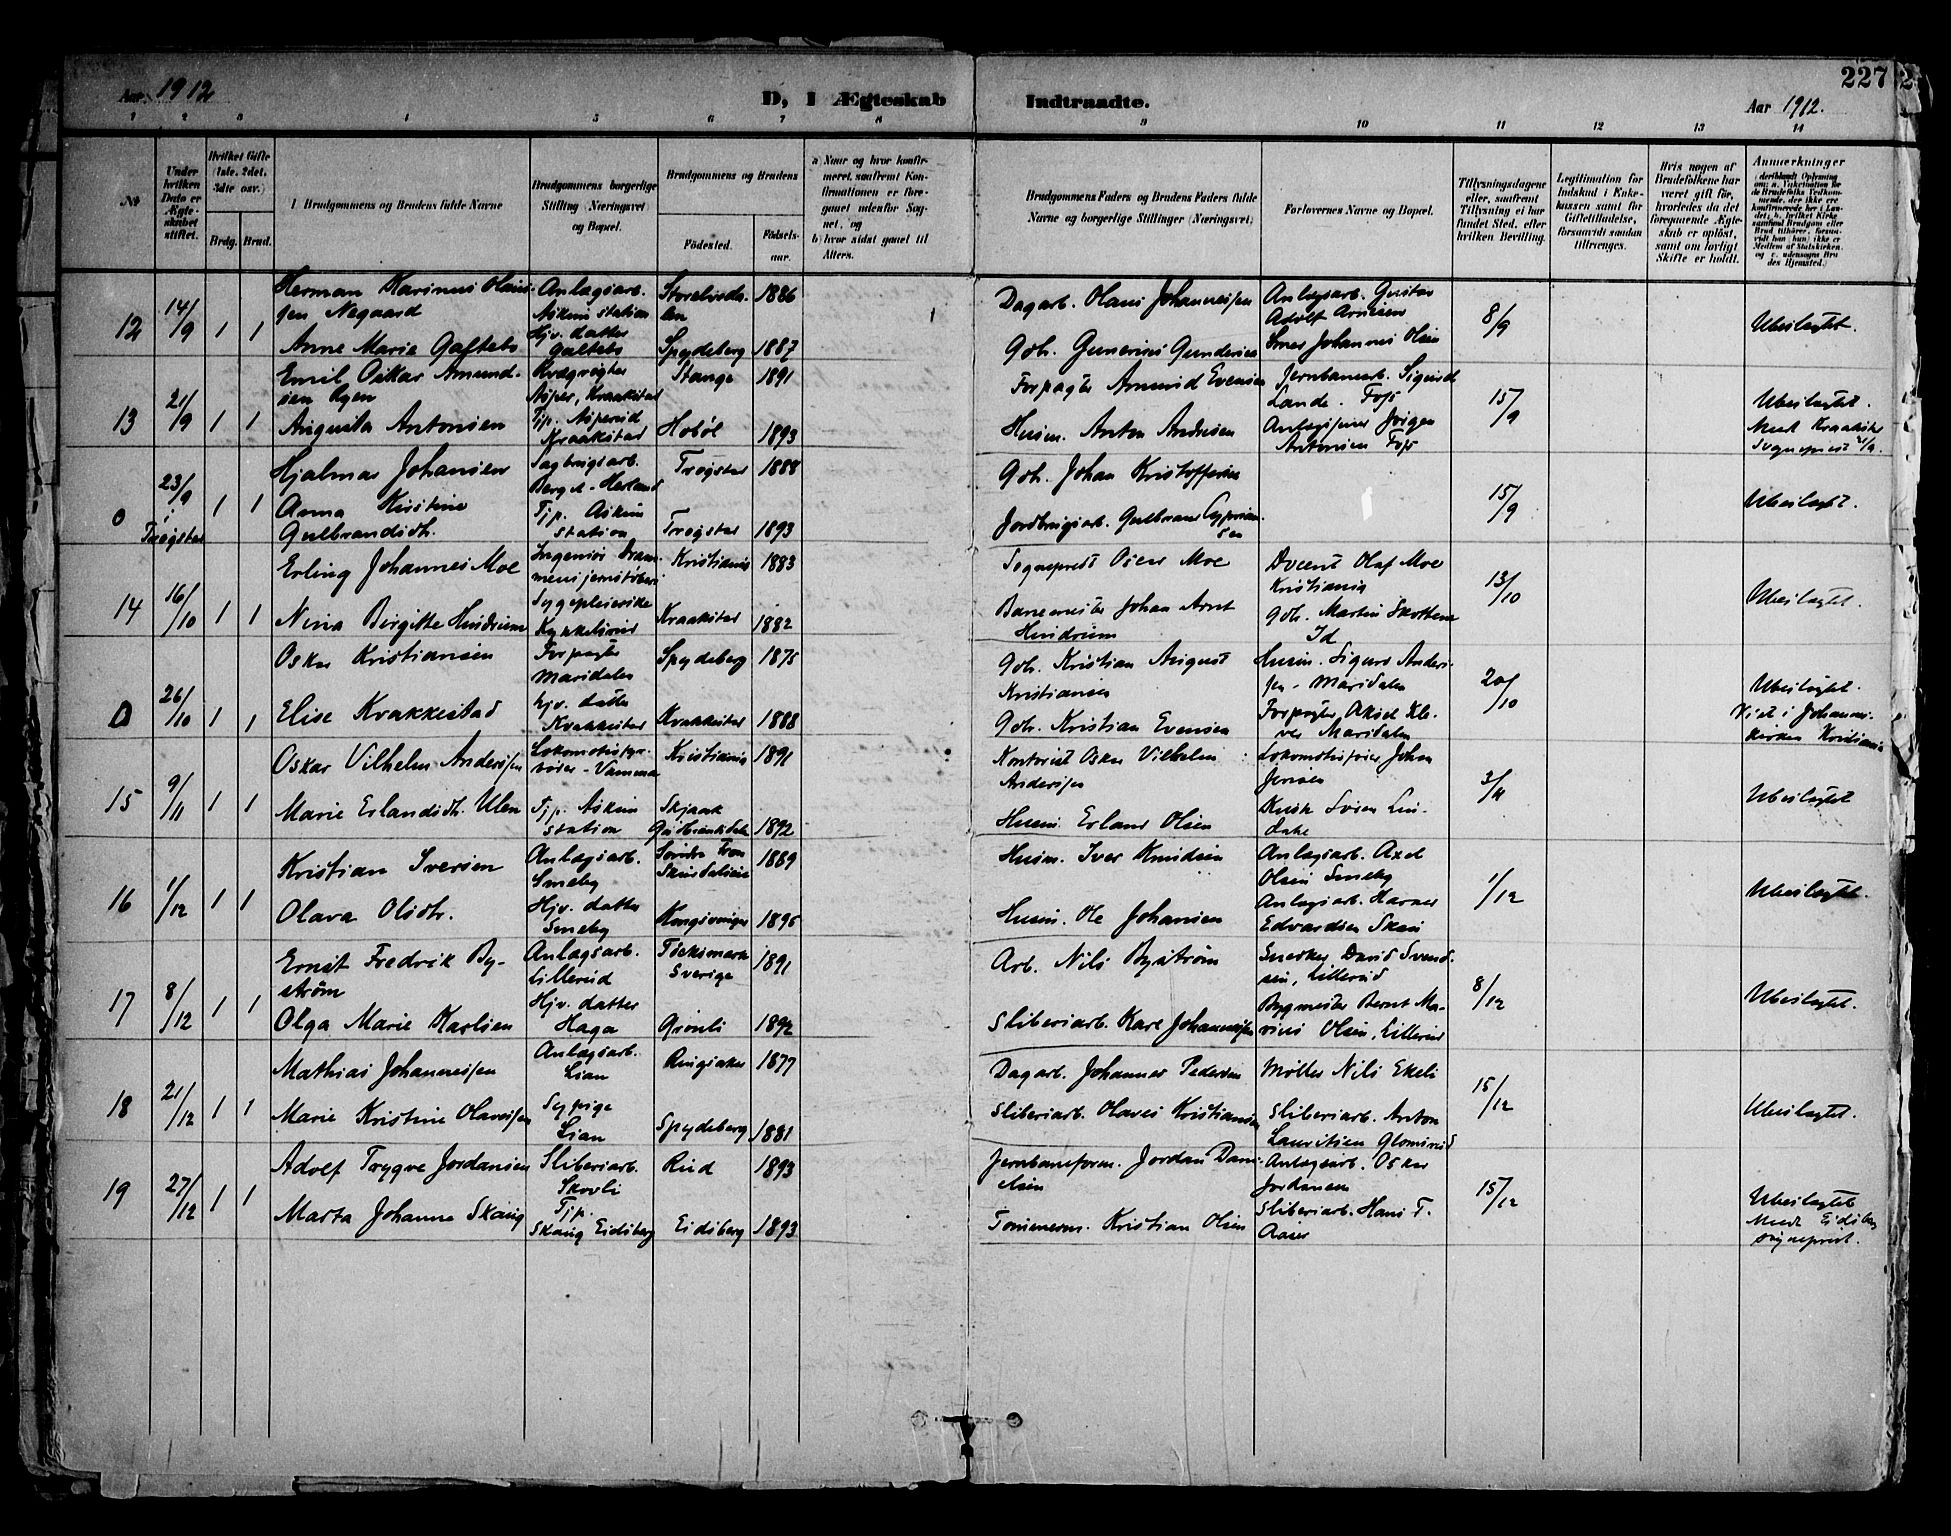 Aar 1912
D, I Ægteskab Indtraadte.
Aar 1912.
227
1 2 3 4 5 6 7 8 9 10 11 12 13 14
No
Under hvilken Dato er Ægteskabet stiftet.
Hvilket Gifte (1ste, 2det, 3dte osv.)
Brdg. Brud.
1 Brudgommens og Brudens fulde Navne
Brudgommens borgerlige Stilling (Næringsvei) og Bopæl.
Brudgommens og Brudens
Fødested. Fødselsaar.
a) Naar og hvor konfirmeret, saafremt Konfirmationen er foregaaet udenfor Sognet, og
b) hvor sidst gaaet til Alters.
Brudgommens Faders og Brudens Faders fulde Navne og borgerlige Stillinger (Næringsvei)
Forlovernes Navne og Bopæl.
Tillysningsdagene eller, saafremt Tillysning ei har fundet Sted, efter hvilken Bevilling.
Legitimation for Indskud i Enkekassen samt for Giftetilladelse, forsaavidt saadan tiltrænges.
Hvis nogen af Brudefolkene har været gift før, hvorledes da det foregaaende Ægteskab er opløst, samt om lovligt Skifte er holdt.
Anmærkninger
12 14/9 1 1 Herman Karinus Olaussen Nøgaard Anlagsarb. Askim station 1886 Dagarb. Olaus Johannessen Anlagsarb. Gustav Adolf Arnesen 8/9 Ubeslægtet.
Anne Marie Galtebo Hjv. datter Galtebo Spydeberg 1887 Gbr. Gunerius Gundersen Smed Johannes Olsen
13 21/9 1 1 Emil Oskar Amundsen Ryen Kvægrøgter Asper, Kraakstad Stange 1891 Forpagter Amund Evensen Jernbanearb. Sigurd Lande. Fos 15/9 Ubeslægtet.
Augusta Antonsen Tjp. Asperud Kraakstad Hobøl 1893 Husm. Anton Andersen Jørgen Antonsen Fos Meld. Kraakstad Sogneprest 21/9.
0 23/9 i Trøgstad 1 1 Hjalmar Johansen Sagbrugsarb. Berget - Herland Trøgstad 1888 Gbr. Johan Kristoffersen 15/9 Ubeslægtet.
Anna Kristine Gulbrandsdtr. Tjp. Askim station Trøgstad 1893 Jordbrugsarb. Gulbrand Cypriansen
14 16/10 1 1 Erling Johannes Moe Ingeniør Drammens jernstøberi Kristiania 1883 Sogneprest Oscar Moe Docent Olaf Moe Kristiania 13/10 Ubeslægtet.
Nina Birgitte Hindrum Sygepleierske Kykkelsrud Kraakstad 1882 Banemester Johan Arnt Hindrum Gbr. Martin Skotten Id
0 26/10 1 1 Oskar Kristiansen Forpagter Maridalen Spydeberg 1875 Gbr. Kristian August Kristiansen Husm. Sigurd Andersen - Maridalen 20/10 Ubeslægtet.
Elise Kvakkestad hjv. datter Kvakkestad Kvakkestad 1888 Gbr. Kristian Evensen Forpagter Aksel Kløver Maridalen Viet i Johanneskirken Kristiania
15 9/11 1 1 Oskar Vilhelm Anderssen Lokomotivfyrbøder - Vamma Kristiania 1891 Kontorist Oskar Vilhelm Anderssen Lokomotivfører Johan Jensen 3/11 Ubeslægtet
Marie Erlandsdtr. Ulen Tjp. Askim station Skjaak Gudbrandsdalen 1892 Husm. Erland Olsen Kusk
16 1/12 1 1 Kristian Iversen Anlagsarb. Smeby Søndre Fron 1889 Husm. Iver Knudsen Anlagsarb. Axel Olsen Smeby 1/12 Ubeslægtet.
Olava Olsdtr. Hjv. datter Smeby Kongsvinger 1895 Husm. Ole Johansen Anlagsarb. Edvardsen Skau
17 8/12 1 1 Ernst Fredrik Byström Anlagsarb. Lillerud Töcksmark Sverige 1891 Arb. Nils Byström Snedker David Svendsen, Lillerud 8/12 Ubeslægtet.
Olga Marie Karlsen Hjv. datter Haga Grønli 1892 Sliberiarb. Karl Johannessen Bygmester Bernt Marius Olsen, Lillerud
18 21/12 1 1 Mathias Johannessen Anlagsarb. Lian Ringsaker 1877 Dagarb. Johannes Pedersen Møller Nils Ekeli 15/12 Ubeslægtet.
Marie Kristine Olavessen Sypige Lian Spydeberg 1881 Sliberiarb. Olaves Kristiansen Sliberiarb. Anton Lauritsen Glomsrud
19 27/12 1 1 Adolf Trygve Jordansen Sliberiarb. Skovli Rud 1893 Jernbaneform. Jordan Danielsen Anlagsarb. Oskar Jordansen 15/12 Ubeslægtet
Marta Johanne Skaug Tjp. Skaug Eidsberg Eidsberg 1893 Tømmerm. Kristian Olsen Sliberiarb. Hans T. Aaser Meld. Eidsberg sogneprest.